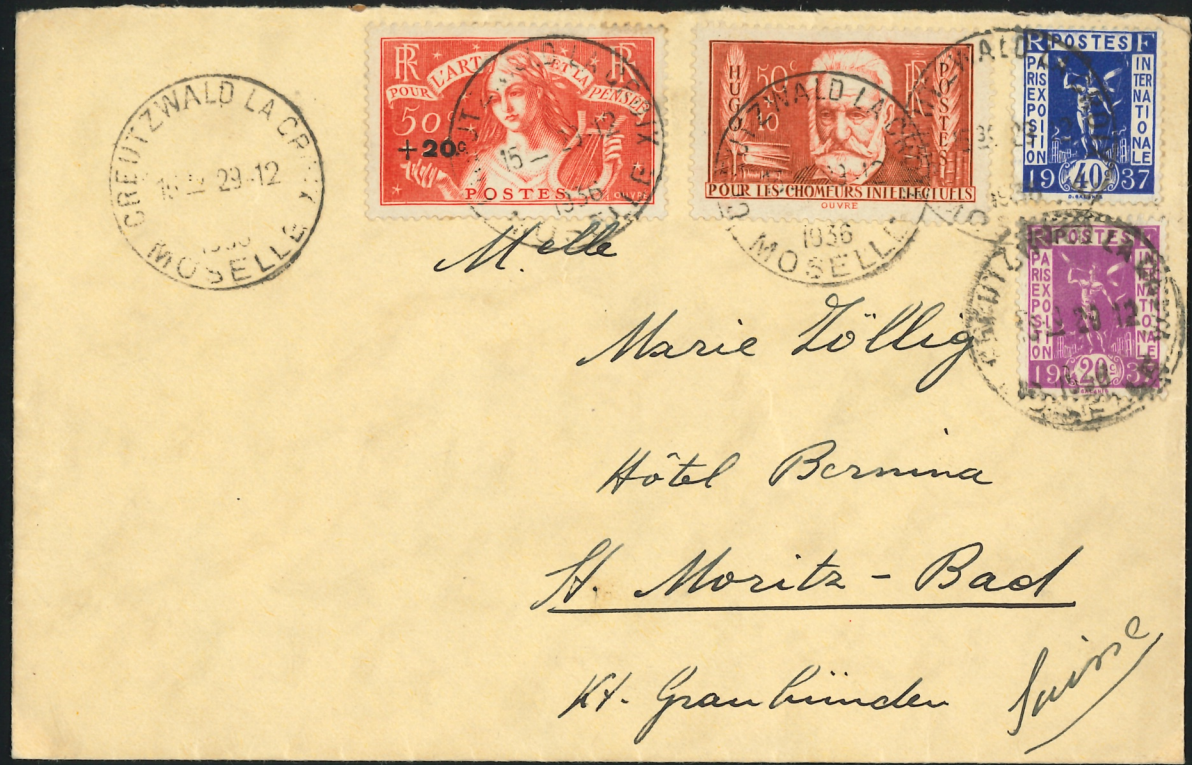 CREUTZWALD LA CROIX
29-12
1936
MOSELLE
RF
RF
POUR L'ART ET LA PENSÉE
50c
+20c
POSTES
OUVRÉ
1936
HUGO
50c
+10c
RF
POSTES
POUR LES CHOMEURS INTELLECTUELS
OUVRÉ
CREUTZWALD LA CROIX
1936
MOSELLE
R POSTES F
PARIS EXPOSITION
INTERNATIONALE
1937
40c
R POSTES F
PARIS EXPOSITION
INTERNATIONALE
1937
20c
29 12
M.elle
Marie Zöllig
Hôtel Bernina
St. Moritz - Bad
Kt. Graubünden
Suisse